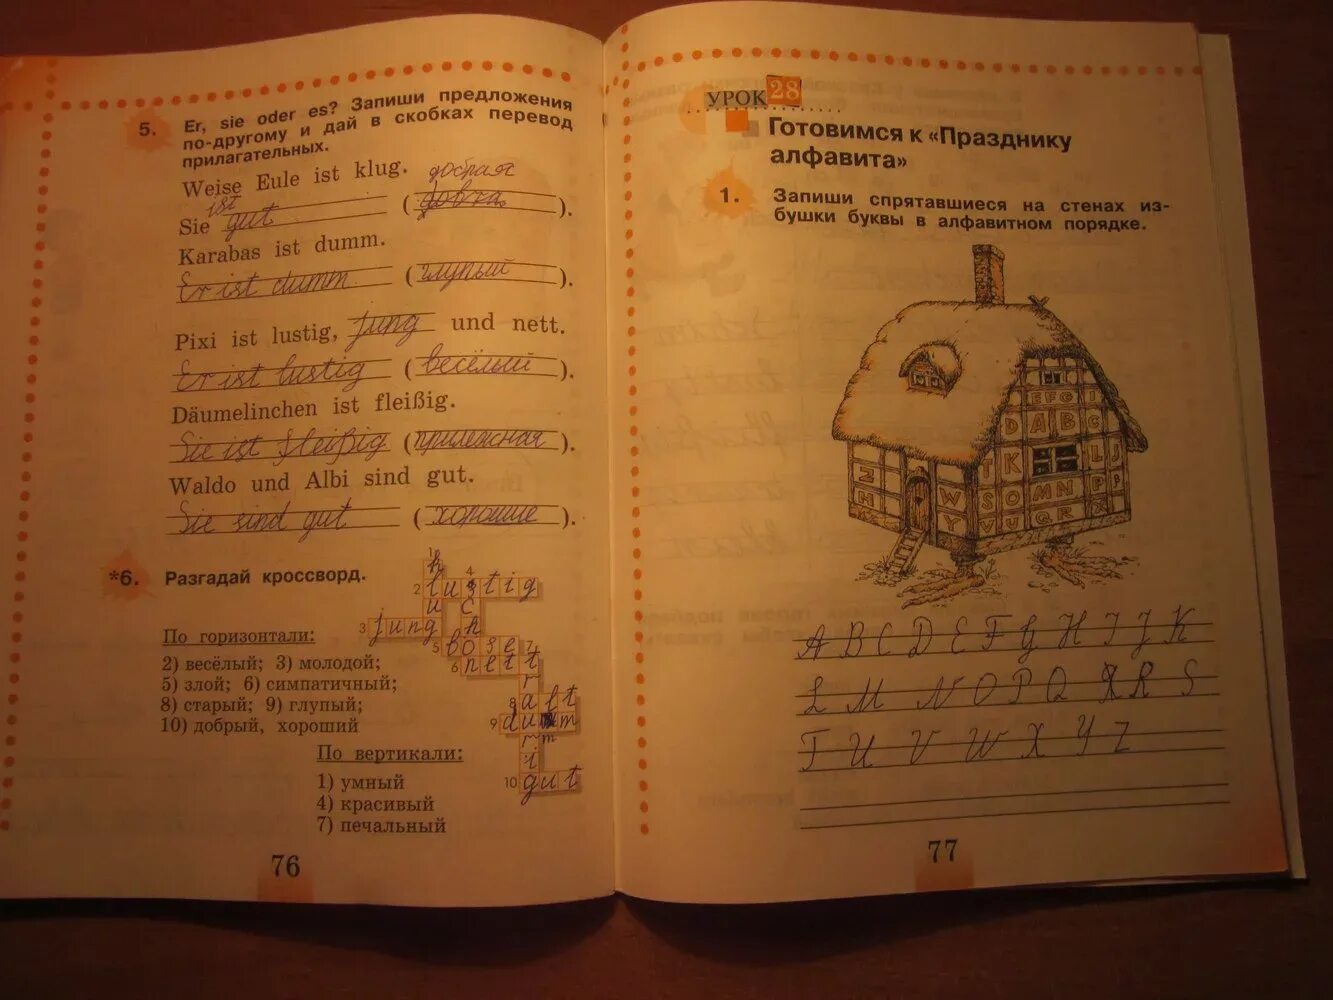 5. Er, sie oder es? Запиши предложения
по-другому и дай в скобках перевод
прилагательных.
Weise Eule ist klug. добрая
ist
Sie gut ( ).
Karabas ist dumm.
Er ist dumm (глупый).
Pixi ist lustig, jung und nett.
Er ist lustig (весёлый).
Däumelinchen ist fleißig.
Sie ist fleißig (прилежная).
Waldo und Albi sind gut.
Sie sind gut (хорошие).
*6. Разгадай кроссворд.
По горизонтали:
2) весёлый; 3) молодой;
5) злой; 6) симпатичный;
8) старый; 9) глупый;
10) добрый, хороший
По вертикали:
1) умный
4) красивый
7) печальный
2 lustig
3 jung
5 böse
6 nett
8 alt
9 dumm
10 gut
76
УРОК 28
Готовимся к «Празднику
алфавита»
1. Запиши спрятавшиеся на стенах из-
бушки буквы в алфавитном порядке.
E F G I
D A B C
Z T K L J
H W S O M N P
Y V U G R X
A B C D E F G H I J K
L M N O P Q R S
T U V W X Y Z
77